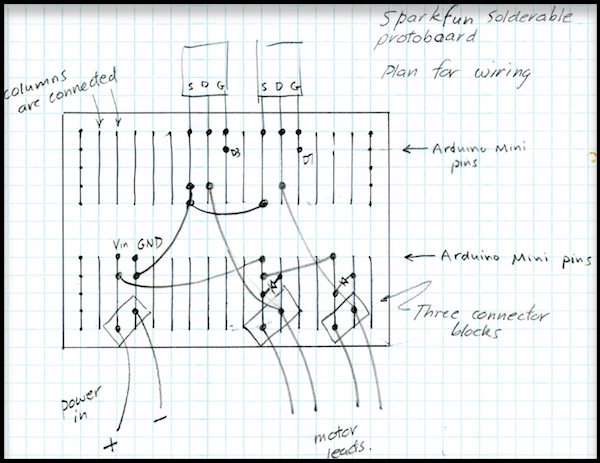 Sparkfun Solderable
protoboard
Plan for wiring
columns
are connected
S D G
S D G
D3
Arduino Mini
pins
Vin GND
Arduino Mini pins
Three connector
blocks
power
in
+ -
motor
leads.